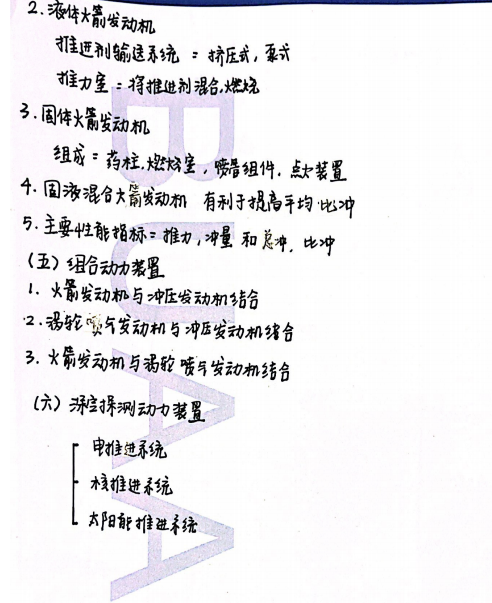 2.液体火箭发动机
推进剂输送系统：挤压式,泵式
推力室：将推进剂混合,燃烧
3.固体火箭发动机
组成：药柱,燃烧室,喷管组件,点火装置
4.固液混合火箭发动机 有利于提高平均比冲
5.主要性能指标：推力,冲量和总冲,比冲
(五)组合动力装置
1.火箭发动机与冲压发动机结合
2.涡轮喷气发动机与冲压发动机结合
3.火箭发动机与涡轮喷气发动机结合
(六)深空探测动力装置
电推进系统
核推进系统
太阳能推进系统
BUAA